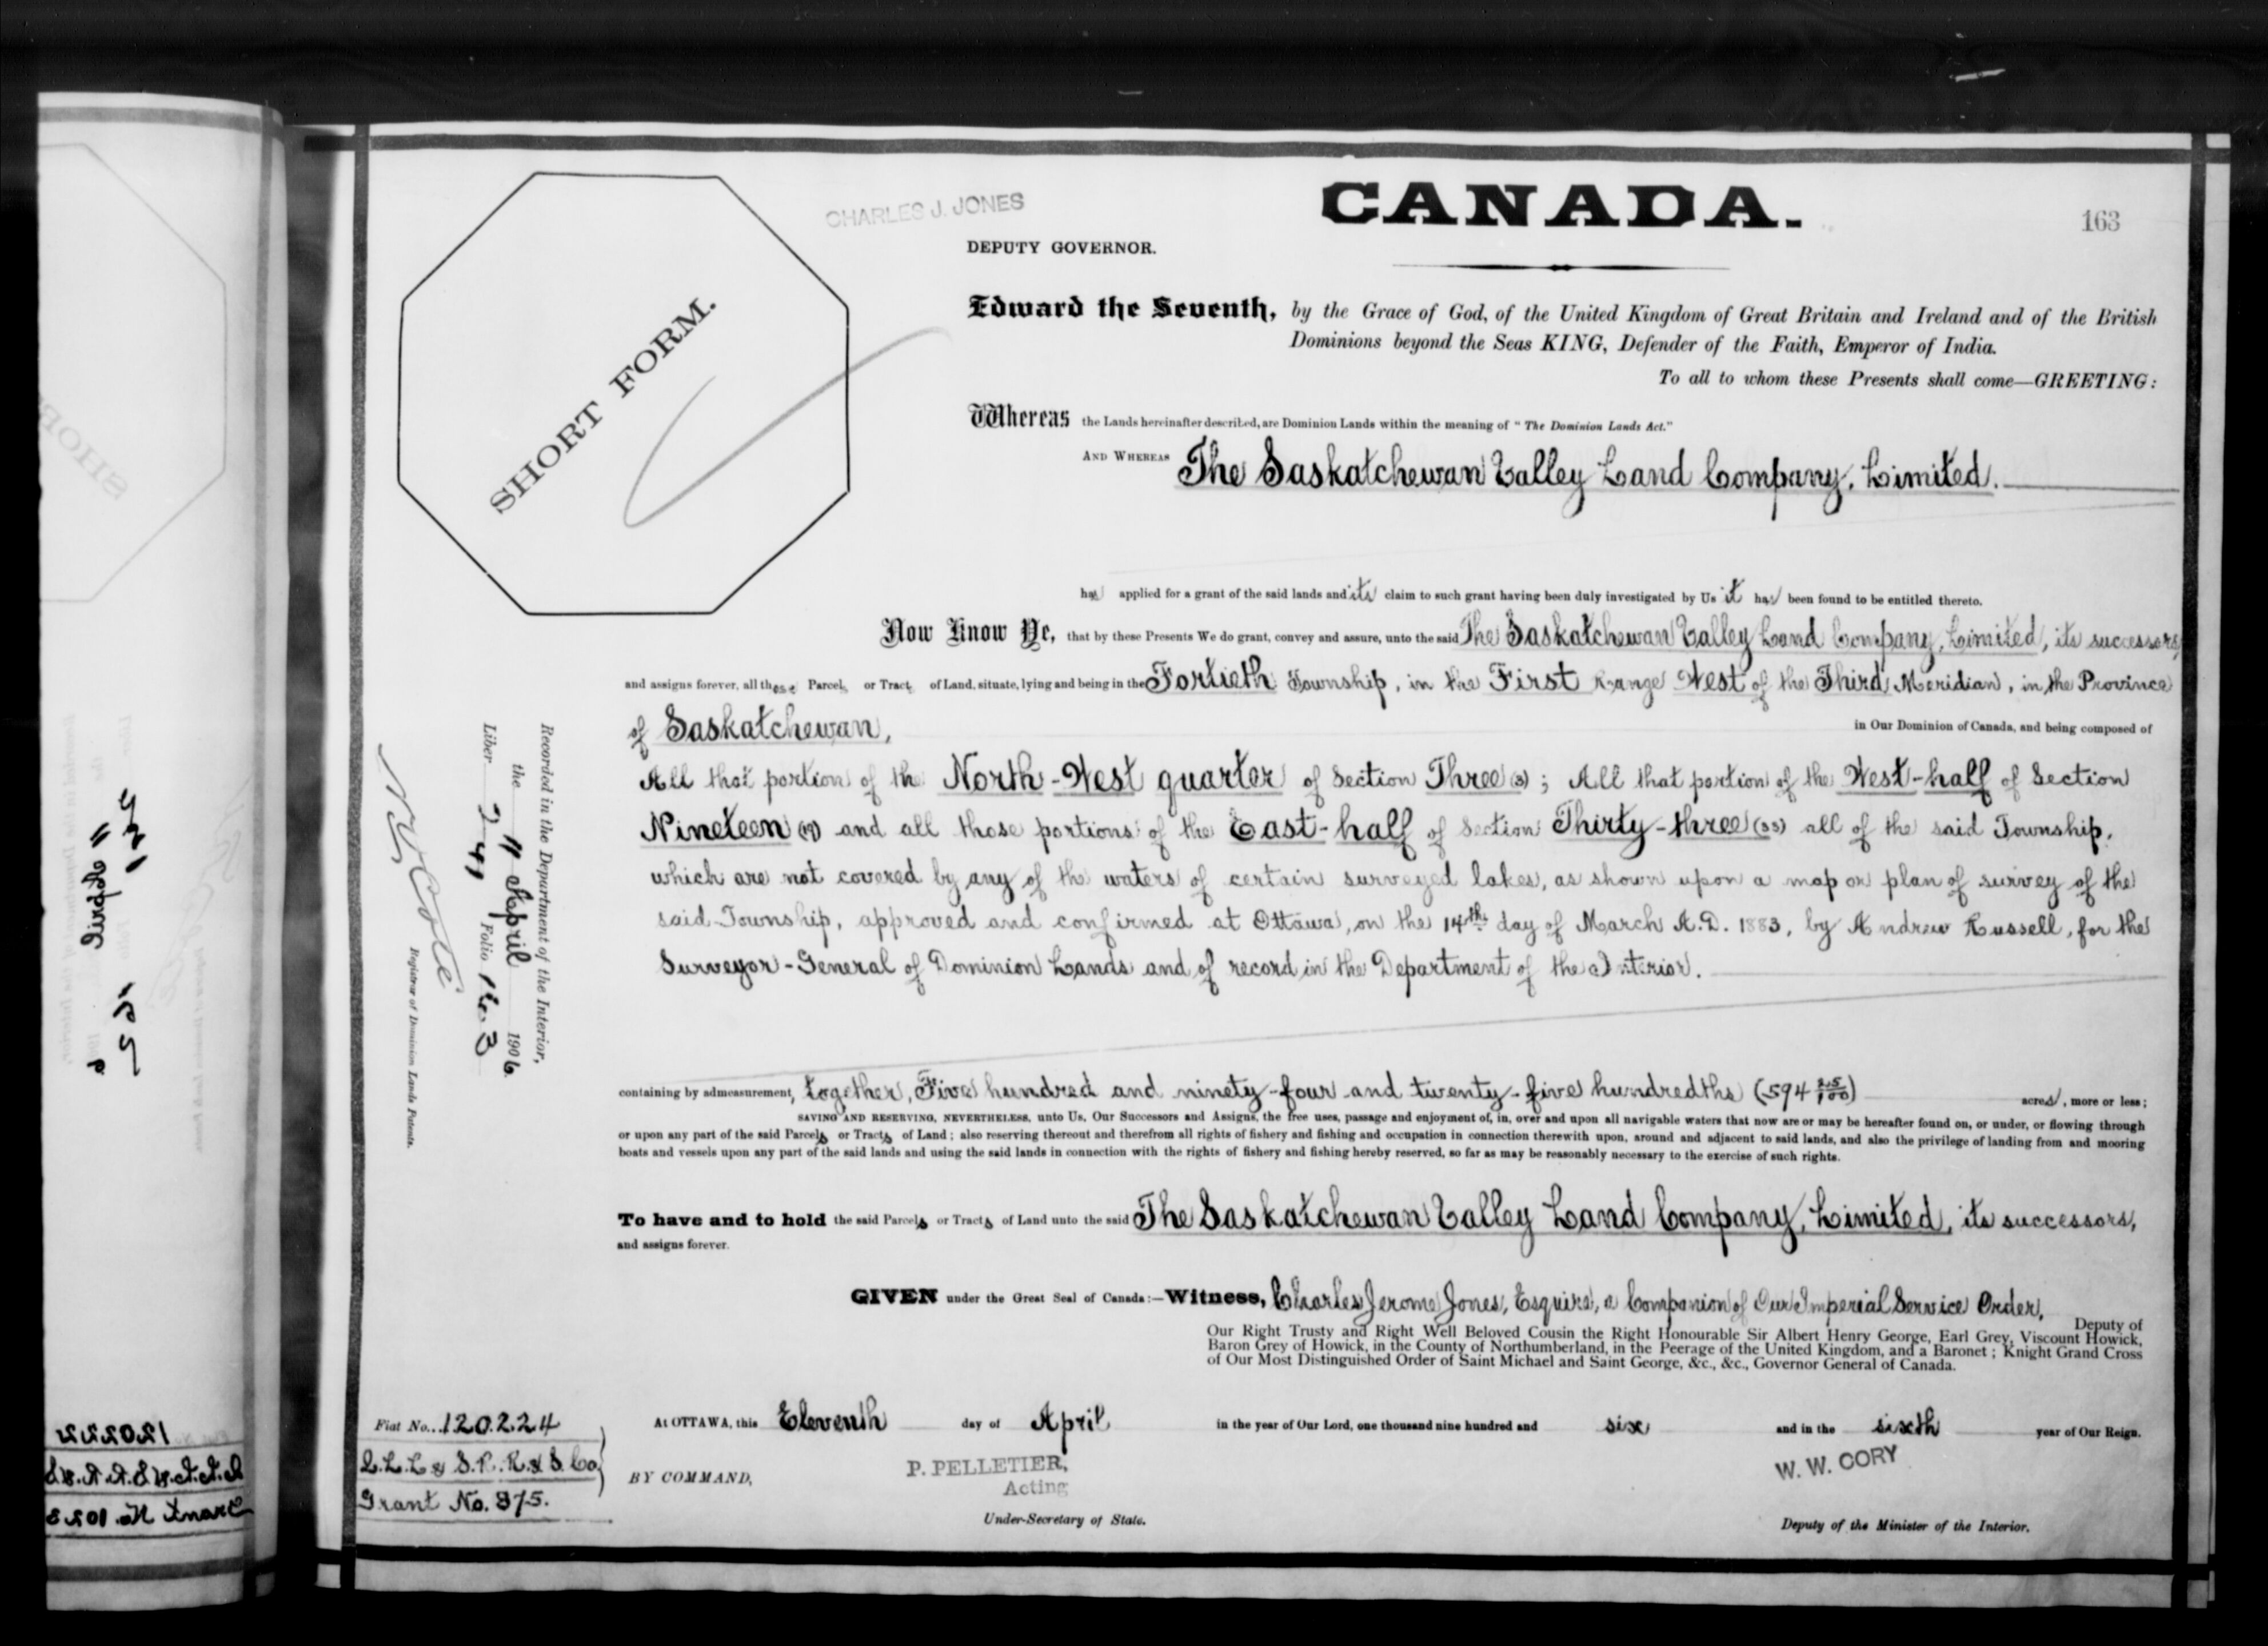 CHARLES J. JONES
CANADA.
163
DEPUTY GOVERNOR.
SHORT FORM.
Edward the Seventh, by the Grace of God, of the United Kingdom of Great Britain and Ireland and of the British
Dominions beyond the Seas KING, Defender of the Faith, Emperor of India.
To all to whom these Presents shall come—GREETING:
Whereas the Lands hereinafter described, are Dominion Lands within the meaning of "The Dominion Lands Act."
AND WHEREAS The Saskatchewan Valley Land Company, Limited.
has applied for a grant of the said lands and its claim to such grant having been duly investigated by Us it has been found to be entitled thereto.
Now Know Ye, that by these Presents We do grant, convey and assure, unto the said The Saskatchewan Valley Land Company, Limited, its successors
and assigns forever, all those Parcels or Tracts of Land, situate, lying and being in the Fortieth Township, in the First Range West of the Third Meridian, in the Province
of Saskatchewan, in Our Dominion of Canada, and being composed of
All that portion of the North-West quarter of Section Three (3); All that portion of the West-half of Section
Nineteen (19) and all those portions of the East-half of Section Thirty-three (33) all of the said Township,
which are not covered by any of the waters of certain surveyed lakes, as shown upon a map or plan of survey of the
said Township, approved and confirmed at Ottawa, on the 14th day of March A.D. 1883, by Andrew Russell, for the
Surveyor-General of Dominion Lands and of record in the Department of the Interior.
containing by admeasurement, together, Five hundred and ninety-four and twenty-five hundredths (594 25/100) acres, more or less;
SAVING AND RESERVING, NEVERTHELESS, unto Us, Our Successors and Assigns, the free uses, passage and enjoyment of, in, over and upon all navigable waters that now are or may be hereafter found on, or under, or flowing through
or upon any part of the said Parcels or Tracts of Land; also reserving thereout and therefrom all rights of fishery and fishing and occupation in connection therewith upon, around and adjacent to said lands, and also the privilege of landing from and mooring
boats and vessels upon any part of the said lands and using the said lands in connection with the rights of fishery and fishing hereby reserved, so far as may be reasonably necessary to the exercise of such rights.
To have and to hold the said Parcels or Tracts of Land unto the said The Saskatchewan Valley Land Company, Limited, its successors,
and assigns forever.
GIVEN under the Great Seal of Canada:—Witness, Charles Jerome Jones, Esquire, a Companion of Our Imperial Service Order,
Deputy of
Our Right Trusty and Right Well Beloved Cousin the Right Honourable Sir Albert Henry George, Earl Grey, Viscount Howick,
Baron Grey of Howick, in the County of Northumberland, in the Peerage of the United Kingdom, and a Baronet; Knight Grand Cross
of Our Most Distinguished Order of Saint Michael and Saint George, &c., &c., Governor General of Canada.
At OTTAWA, this Eleventh day of April in the year of Our Lord, one thousand nine hundred and six and in the sixth year of Our Reign.
BY COMMAND,
P. PELLETIER,
Acting
Under-Secretary of State.
W. W. CORY
Deputy of the Minister of the Interior.
Recorded in the Department of the Interior,
the 11 April 1906
Liber 241 Folio 163
N. O. Coté
Registrar of Dominion Lands Patents.
Fiat No. 120224
Q.L.L & S.R. R. & S. Co.
Grant No. 875.